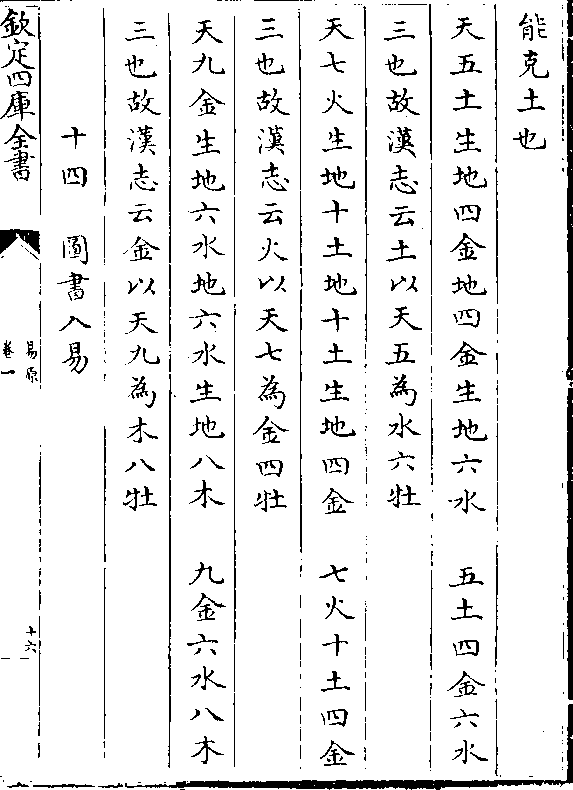 能克土也
天五土生地四金地四金生地六水　五土四金六水
三也故漢志云土以天五為水六牡
天七火生地十土地十土生地四金　七火十土四金
三也故漢志云火以天七為金四牡
天九金生地六水地六水生地八木　九金六水八木
三也故漢志云金以天九為木八牡
十四　圖書入易
欽定四庫全書
易原
卷一
十六